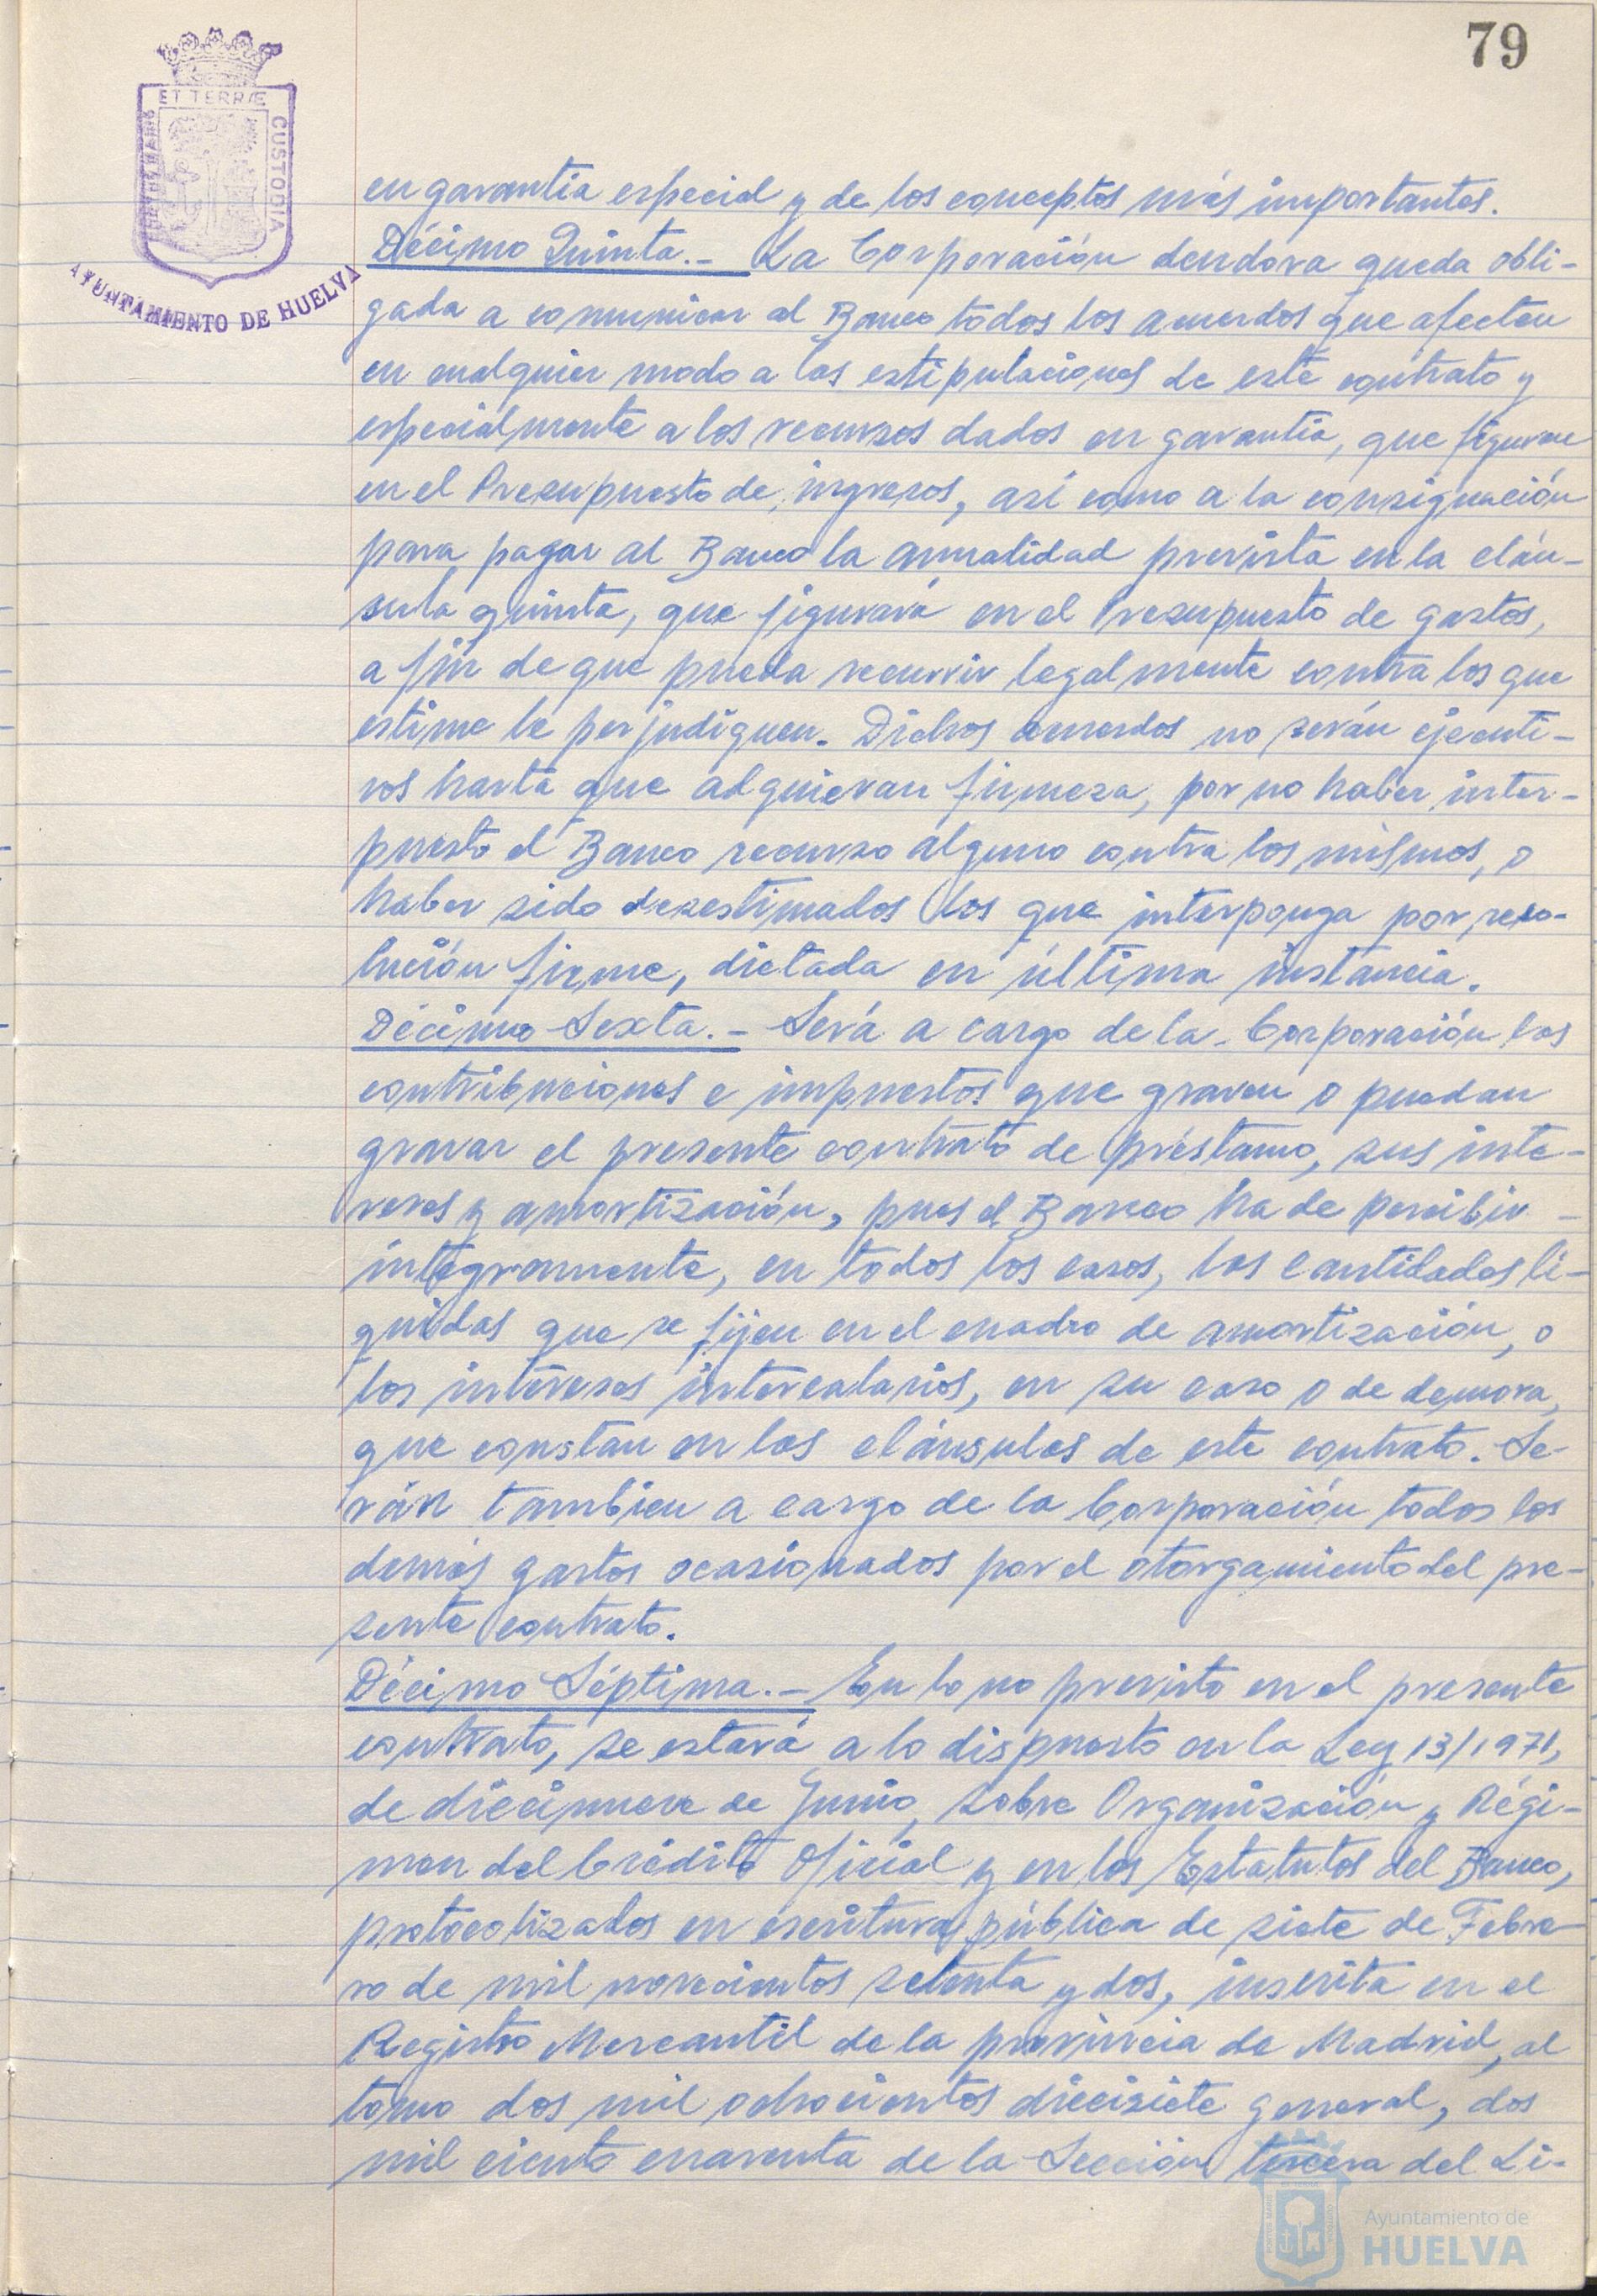 79
ET TERRÆ
PORTUS MARIS
CUSTODIA
AYUNTAMIENTO DE HUELVA
en garantía especial y de los conceptos más importantes.
Décimo Quinta.- La Corporación deudora queda obli-
gada a comunicar al Banco todos los acuerdos que afecten
en cualquier modo a las estipulaciones de este contrato y
especialmente a los recursos dados en garantía, que figuran
en el Presupuesto de ingresos, así como a la consignación
para pagar al Banco la anualidad prevista en la cláu-
sula quinta, que figurará en el Presupuesto de gastos,
a fin de que pueda recurrir legalmente contra los que
estime le perjudiquen. Dichos acuerdos no serán ejecuti-
vos hasta que adquieran firmeza, por no haber inter-
puesto el Banco recurso alguno contra los mismos, o
haber sido desestimados los que interponga por reso-
lución firme, dictada en última instancia.
Décimo Sexta.- Será a cargo de la Corporación las
contribuciones e impuestos que graven o puedan
gravar el presente contrato de préstamo, sus inte-
reses y amortización, pues el Banco ha de percibir -
íntegramente, en todos los casos, las cantidades lí-
quidas que se fijen en el cuadro de amortización, o
los intereses intercalarios, en su caso o de demora,
que constan en las cláusulas de este contrato. Se-
rán tambien a cargo de la Corporación todos los
demás gastos ocasionados por el otorgamiento del pre-
sente contrato.
Décimo Séptima.- En lo no previsto en el presente
contrato, se estará a lo dispuesto en la Ley 13/1971,
de diecinueve de Junio, sobre Organización y Régi-
men del Crédito Oficial y en los Estatutos del Banco,
protocolizados en escritura pública de siete de Febre-
ro de mil novecientos setenta y dos, inscrita en el
Registro Mercantil de la provincia de Madrid, al
tomo dos mil ochocientos diecisiete general, dos
mil ciento cuarenta de la Sección tercera del Li-
Ayuntamiento de
HUELVA